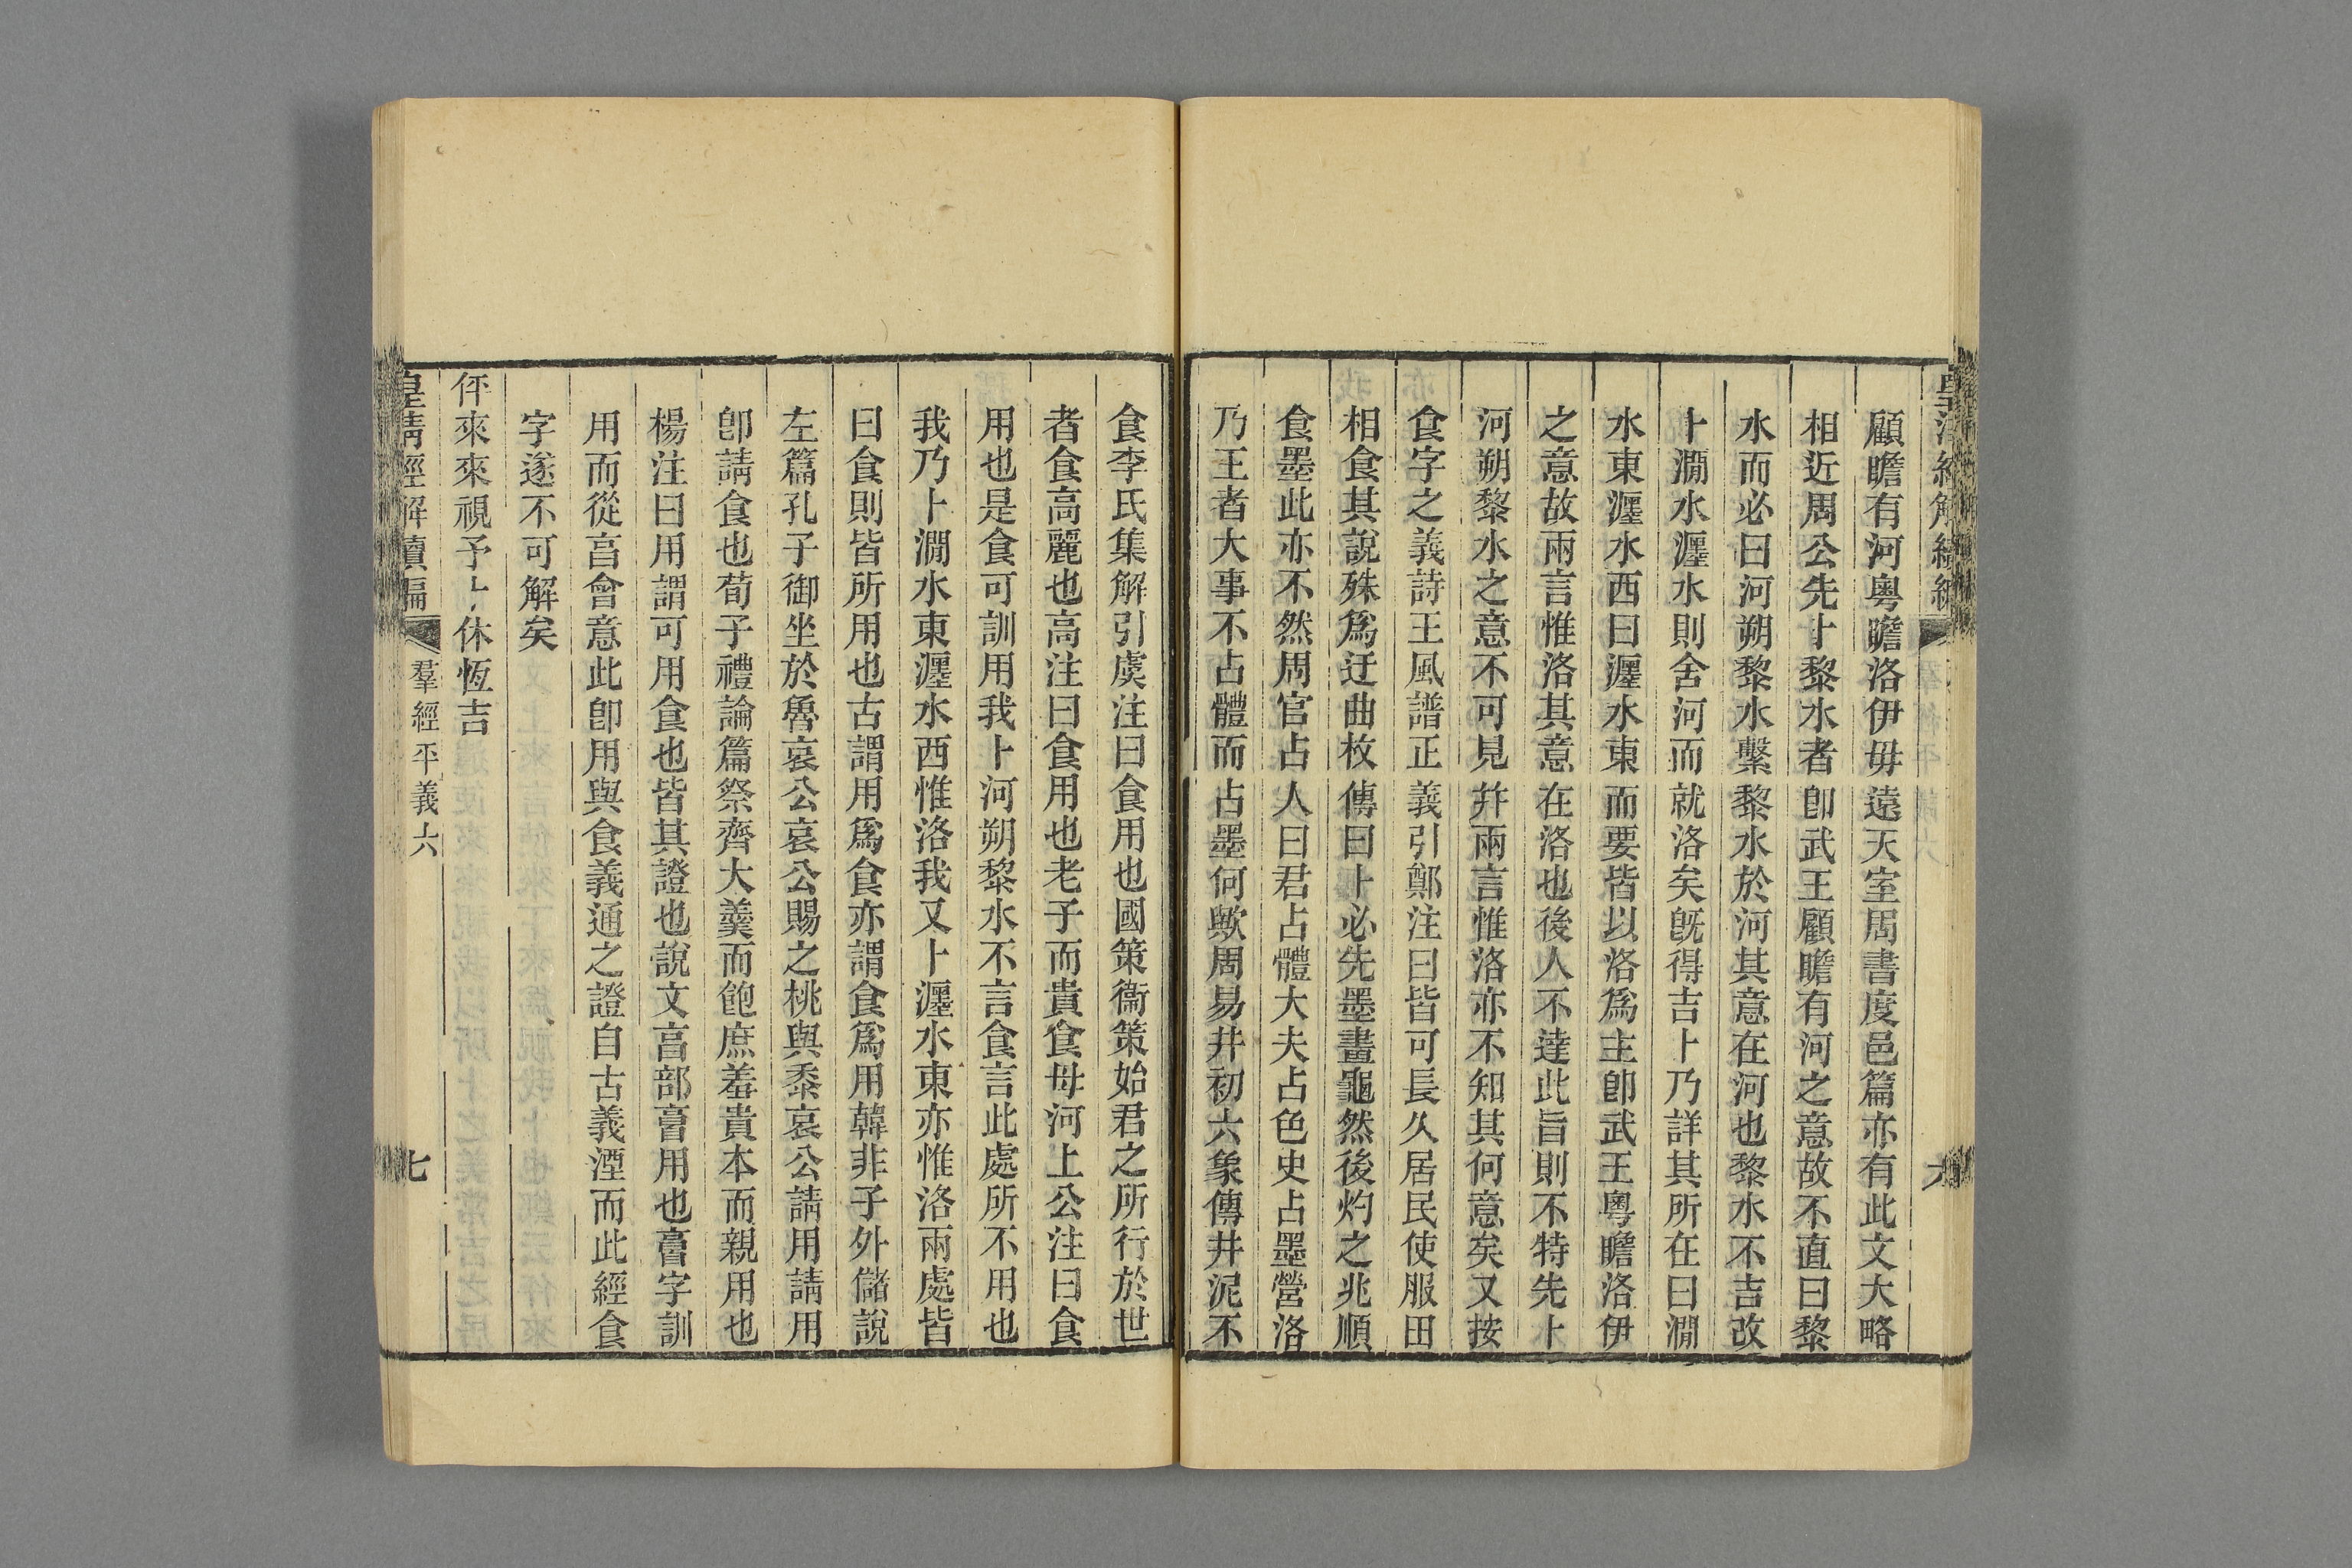 顧瞻有河粵瞻洛伊毋遠天室周書度邑篇亦有此文大略
相近周公先卜黎水者卽武王顧瞻有河之意故不直曰黎
水而必曰河朔黎水繫黎水於河其意在河也黎水不吉改
卜澗水瀍水則舍河而就洛矣旣得吉卜乃詳其所在曰澗
水東瀍水西曰瀍水東而要皆以洛爲主卽武王粵瞻洛伊
之意故兩言惟洛其意在洛也後人不達此旨則不特先卜
河朔黎水之意不可見幷兩言惟洛亦不知其何意矣又按
食字之義詩王風譜正義引鄭注曰皆可長久居民使服田
相食其說殊爲迂曲枚傳曰卜必先墨畫龜然後灼之兆順
食墨此亦不然周官占人曰君占體大夫占色史占墨營洛
乃王者大事不占體而占墨何歟周易井初六象傳井泥不
食李氏集解引虞注曰食用也國策衞策始君之所行於世
者食高麗也高注曰食用也老子而貴食母河上公注曰食
用也是食可訓用我卜河朔黎水不言食言此處所不用也
我乃卜澗水東瀍水西惟洛我又卜瀍水東亦惟洛兩處皆
曰食則皆所用也古謂用爲食亦謂食爲用韓非子外儲說
左篇孔子御坐於魯哀公哀公賜之桃與黍哀公請用請用
卽請食也荀子禮論篇祭齊大羹而飽庶羞貴本而親用也
楊注曰用謂可用食也皆其證也說文亯部𠅭用也𠅭字訓
用而從亯會意此卽用與食義通之證自古義湮而此經食
字遂不可解矣
伻來來視予卜休恆吉
皇淸經解續編
羣經平義六
七